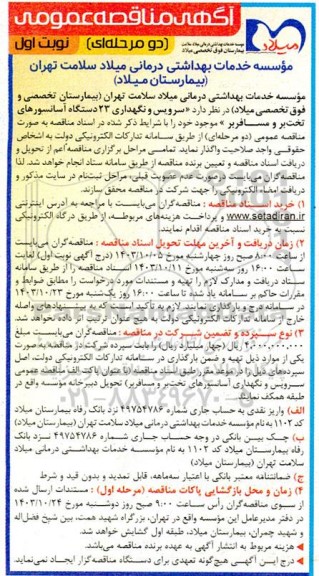 آگهی مناقصه عمومی
(دو مرحله‌ای) نوبت اول
میلاد
مؤسسه خدمات بهداشتی درمانی میلاد سلامت تهران
(بیمارستان میلاد)
مؤسسه خدمات بهداشتی درمانی میلاد سلامت تهران (بیمارستان تخصصی و
فوق تخصصی میلاد) در نظر دارد «سرویس و نگهداری ۲۳ دستگاه آسانسورهای
تخت‌بر و مسافربر» موجود خود را با شرایط ذکر شده در اسناد مناقصه به صورت
مناقصه عمومی (دو مرحله‌ای) از طریق سامانه تدارکات الکترونیکی دولت به اشخاص
حقوقی واجد صلاحیت واگذار نماید. تمامی مراحل برگزاری مناقصه اعم از تحویل و
دریافت اسناد مناقصه و تعیین برنده مناقصه از طریق سامانه ستاد انجام خواهد شد. لذا
مناقصه‌گران در صورت عدم عضویت قبلی، مراحل ثبت‌نام در سایت مذکور و
دریافت امضاء الکترونیکی را جهت شرکت در مناقصه محقق سازند.
۱) خرید اسناد مناقصه : مناقصه‌گران می‌بایست با مراجعه به آدرس اینترنتی
www.setadiran.ir و پرداخت هزینه‌های مربوطه، از طریق درگاه الکترونیکی
نسبت به خرید اسناد مناقصه اقدام نمایند.
۲) زمان دریافت و آخرین مهلت تحویل اسناد مناقصه : مناقصه‌گران می‌بایست
از ساعت ۸:۰۰ صبح روز چهارشنبه مورخ ۱۴۰۳/۱۰/۰۵ (درج آگهی نوبت اول) لغایت
ساعت ۱۶:۰۰ روز سه‌شنبه مورخ ۱۴۰۳/۱۰/۱۱ اسناد مناقصه را از طریق سامانه
ستاد دریافت و مدارک لازم را تهیه و مستندات مورد درخواست را مطابق ضوابط و
مقررات حاکم بر سامانه یاد شده تا ساعت ۱۶:۰۰ روز یکشنبه مورخ ۱۴۰۳/۱۰/۲۳
در سامانه مذکور بارگذاری نمایند. لازم به تأکید است که به پیشنهادهای واصله
خارج از سامانه تدارکات الکترونیکی دولت به هیچ عنوان ترتیب اثر داده نخواهد شد.
۳) نوع سپرده و تضمین شرکت در مناقصه : مناقصه‌گران می‌بایست مبلغ
۴٫۰۰۰٫۰۰۰٫۰۰۰ ریال (چهار میلیارد ریال) را بابت سپرده شرکت در مناقصه به صورت
یکی از موارد ذیل تهیه و ضمن بارگذاری در سامانه تدارکات الکترونیکی دولت، اصل
سپرده‌های ذیل را در موعد مقرر طبق اسناد مناقصه (تحت عنوان پاکت الف مناقصه عمومی
سرویس و نگهداری آسانسورهای تخت‌بر و مسافربر) تحویل دبیرخانه مؤسسه واقع در
طبقه همکف نمایند.
الف) واریز نقدی به حساب جاری شماره ۴۹۷۵۴۷۸۶ نزد بانک رفاه بیمارستان میلاد
کد ۱۱۰۲ به نام مؤسسه خدمات بهداشتی درمانی میلاد سلامت تهران (بیمارستان میلاد)
ب) چک بین بانکی در وجه حساب جاری شماره ۴۹۷۵۴۷۸۶ نزد بانک
رفاه بیمارستان میلاد کد ۱۱۰۲ به نام مؤسسه خدمات بهداشتی درمانی میلاد
سلامت تهران (بیمارستان میلاد)
ج) ضمانتنامه معتبر بانکی با اعتبار سه‌ماهه، قابل تمدید و بدون قید و شرط
۴) زمان و محل بازگشایی پاکات مناقصه (مرحله اول) : مستندات ارسال شده
از سوی مناقصه‌گران رأس ساعت ۹:۰۰ صبح روز دوشنبه مورخ ۱۴۰۳/۱۰/۲۴
در دفتر مدیرعامل این مؤسسه واقع در تهران، بزرگراه شهید همت، بین شیخ فضل‌اله
و شهید چمران، بیمارستان میلاد، طبقه اول گشایش خواهد شد.
هزینه مربوط به انتشار آگهی به عهده برنده مناقصه می‌باشد.
درج این آگهی هیچ‌گونه تعهدی برای دستگاه مناقصه‌گزار ایجاد نمی‌نماید.
۰۲۱-۸۸۳۴۹۶۷۰